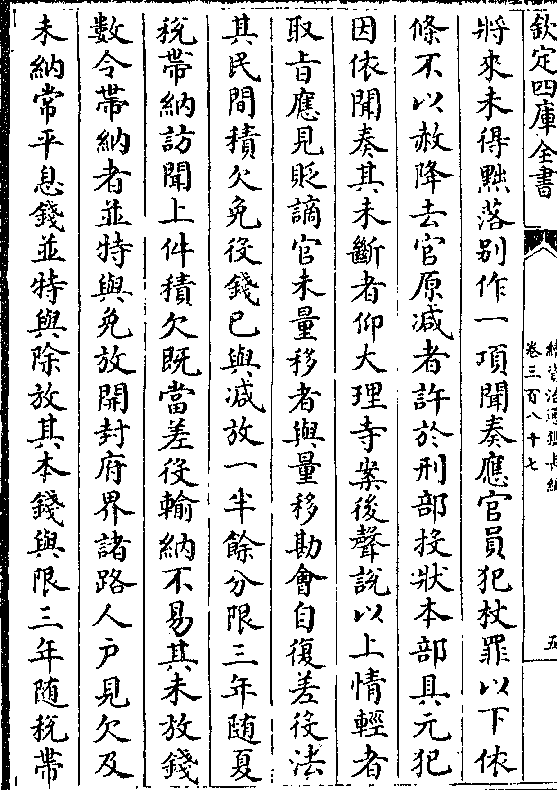 欽定四庫全書
續資治通鑑長編
卷三百八十七
五
將來未得黜落别作一項聞奏應官員犯杖罪以下依
條不以赦降去官原减者許於刑部投狀本部具元犯
因依聞奏其未斷者仰大理寺案後聲說以上情輕者
取㫖應見貶謫官未量移者與量移勘會自復差役法
其民間積欠免役錢已與减放一半餘分限三年随夏
稅帶納訪聞上件積欠既當差役輸納不易其未放錢
數令帶納者並特與免放開封府界諸路人户見欠及
未納常平息錢並特與除放其本錢與限三年随稅帶